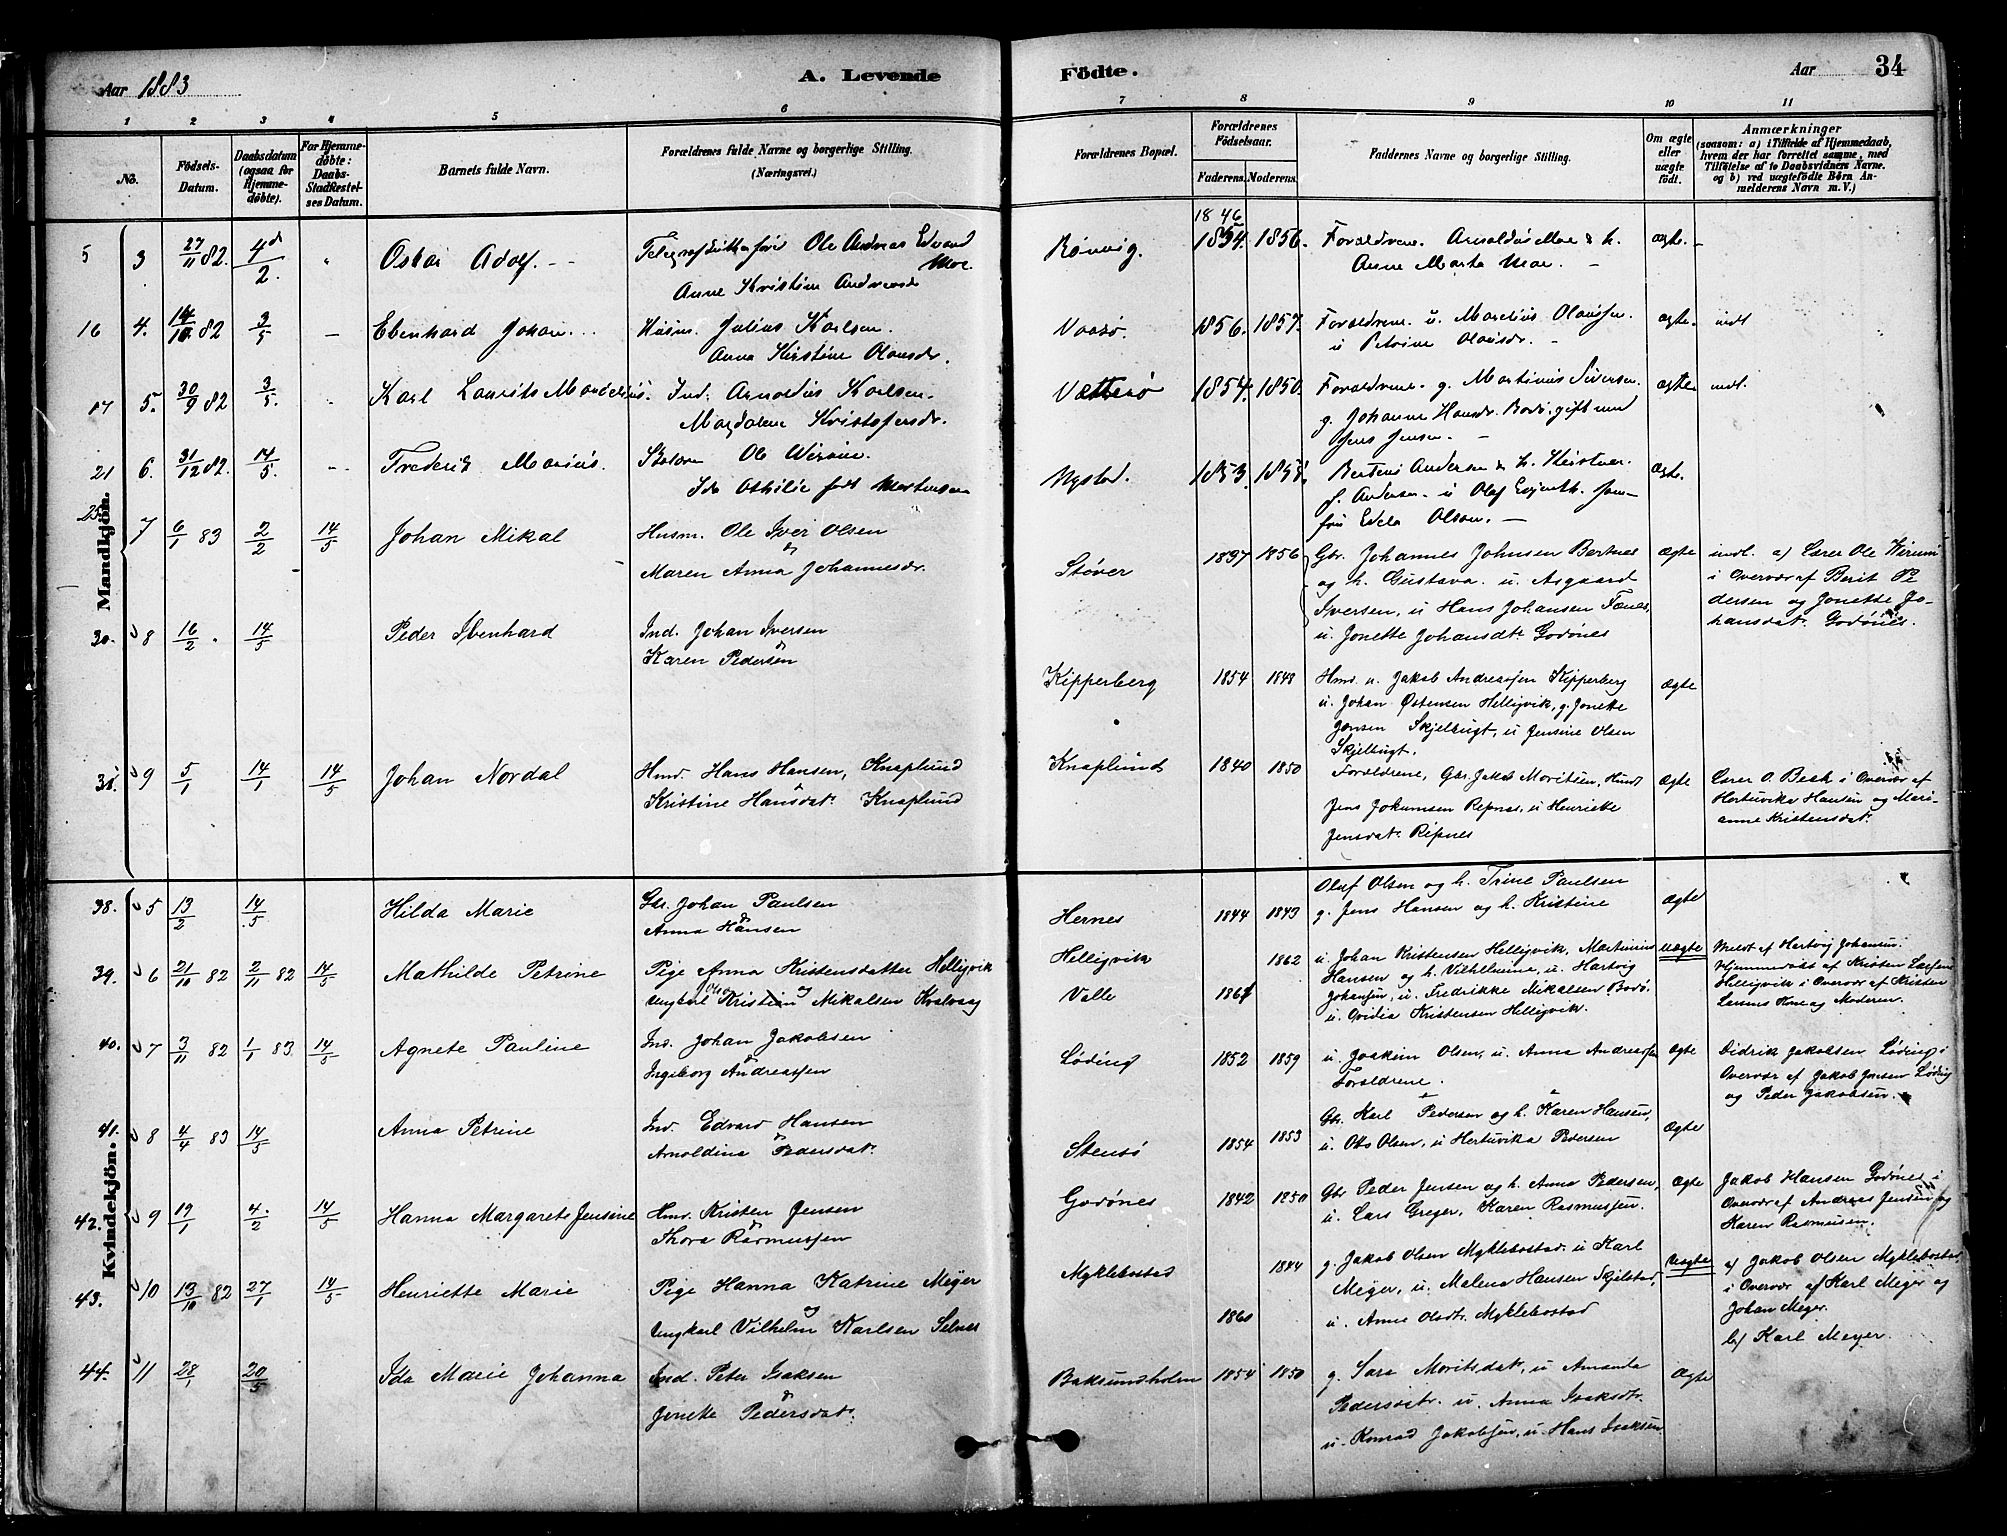 Aar 1883
A. Levende
Födte.
Aar
34
1 2 3 4 5 6 7 8 9 10 11
No.
Födsels-
Datum.
Daabsdatum
(ogsaa for
Hjemme-
døbte).
For Hjemme-
døbte:
Daabs-
Stadfæstel-
ses Datum.
Barnets fulde Navn.
Forældrenes fulde Navne og borgerlige Stilling.
(Næringsvei.)
Forældrenes Bopæl.
Forældrenes
Födselsaar.
Faderens. Moderens.
Faddernes Navne og borgerlig Stilling.
Om ægte
eller
uægte
født.
Anmærkninger
(saasom: a) i Tilfælde af Hjemmedaab,
hvem der har forrettet samme, med
Tilføielse af to Daabsvidners Navne.
og b) ved uægtefödte Børn An-
melderens Navn m. V.)
Mandkjön.
5 3 27/11 82. 4d/2 Oskar Adolf.
Ole Andreas Edvard
Moe.
Anne Kristine Andreasdr
Rønvig. 1846 1854. 1856. Forældrene. Arnoldus Moe & h.
Anne Marta Moe. ægte.
16 4. 14/10 82 3/5 Ebenhard Johan.
Husm. Julius Karlsen.
Anna Kirstine Olausdr.
Vaasø. 1856. 1857. Forældrene. u. Marelius Olaussen.
u Petrine Olausdr. ægte. indl
17 5. 30/9 82 3/5. Karl Laurits
Ind. Arnoldus Karlsen.
Magdalene Kristofersdr.
Vættesø 1854. 1850. Forældrene. g. Martinus Siversen.
g. Johanne Hansdr. Bodø, gift med
Jens Jensen. ægte indl.
21 6. 31/12 82. 14/5 Frederik Marius.
Ole
Ida Othilie født Mortensen
Nystad. 1853. 1858. Andersen & h.
f. Andersen. u Olaf
Olsen. Ægte.
25 7 6/1 83 2/2 14/5 Johan Mikal
Husm. Ole Iver Olsen
&
Maren Anna Johannesdr.
Støver 1837 1856 Gbr. Johannes Johnsen Bertnes
og h. Gustava. u. Asgaard
Iversen, u Hans Johansen Fænes,
u. Jonette Johansdtr Godønes
Ægte indl. a) Lærer Ole
i Overvær af Berit Pe
dersen og Jonette Jo-
hansdat. Godønes.
30. 8 16/2 14/5 Peder Ibenhard
Ind. Johan Iversen
&
Karen Pedersen
Kipperberg 1854 1848 Hmd. u. Jakob Andreassen Kipperberg
u. Johan Østensen Helligvik, g. Jonette
Jensen Skjelbugt, u Jensine Olsen
Skjelbugt. Ægte
9 5/1 14/1 14/5 Johan Nordal
Hmd. Hans Hansen, Knaplund
&
Kristine Hansdat. Knaplund
Knaplund 1840 1850 Forældrene, Gbr. Jakob Moritsen,
Jens Jokumsen Ripnes, u Henriette
Jensdat. Ripnes
Ægte Lærer O. Beck i Overvær af
Hertuvika Hansen og Mari-
anne Kristensdat.
Kvindekjön.
38. 5 13/2 14/5 Hilda Marie
Gbr. Johan Paulsen
&
Anna Hansen
Hernes 1844 1843 Oluf Olsen og h. Trine Paulsen
g. Jens Hansen og h. Kristine Ægte
39. 6 21/10 82 2/11 82 14/5 Mathilde Petrine
Pige Anna Kristensdatter Helligvik
og
Ungkarl Kristian Mikalsen Kvalvaag
Helligvik 1862
Valle
u. Johan Kristensen Helligvik,
Hansen og h. Vilhelmine, u. Hartvig
Johansen, u. Fredrikke Mikalsen Bodø.
u. Ovidia Kristensen Helligvik.
uægte Meldt af Hertvig Johansen.
Hjemmedøbt af Kristen Larsen
Helligvik i Overvær af Kristen
Larsens Kone og Moderen.
40. 7 3/11 82 1/1 83 14/5 Agnete Pauline
Ind. Johan Jakobsen
&
Ingeborg Andreassen
Løding 1852 1859 u. Joakim Olsen, u. Anna Andreassen
Forældrene.
Ægte Didrik Jakobsen Løding i
Overvær af Jakob Jensen Løding
og Peder Jakobsen.
41. 8 4/4 83 14/5 Anna Petrine
Ind. Edvard Hansen
&
Arnoldina Pedersdat.
Stensø 1854 1853 Gbr. Karl Pedersen og h. Karen Hansen,
u. Ots Olsen, u Hertuvika Pedersen Ægte
42. 9 19/1 4/2 14/5 Hanna Margarete Jensine
Hmd. Kristen Jensen
&
Thora Rasmussen
Godønes 1842 1850 Gbr Peder Jensen og h. Anna Pedersen,
u. Lars Greger, Karen Rasmussen.
Ægte Jakob Hansen Godønes i
Overvær af Andreas Jensen og
Karen Rasmusen.
43. 10 13/10 82 27/1 14/5 Henriette Marie
Pige Hanna Katrine Meyer
og
Ungkarl Vilhelm Karlsen Selnes
Myklebostad 1844
1860
g. Jakob Olsen Myklebostad. u Karl
Meyer, u. Malena Hansen Skjelstad,
u. Anne Olsdtr. Myklebostad
Uægte a) Jakob Olsen Myklebostad
i Overvær af Karl Meyer og
Johan Meyer.
b) Karl Meyer.
44. 11 28/1 20/5 Ida Marie Johanna
Ind. Peter Isaksen
&
Jonette Pedersdat.
Baksundholm 1854 1850 g. Sara Moritsdat, u. Amanda
Pedersdtr. u. Anna Isaksdtr.
u. Konrad Jakobsen, u. Hans Isaksen Ægte